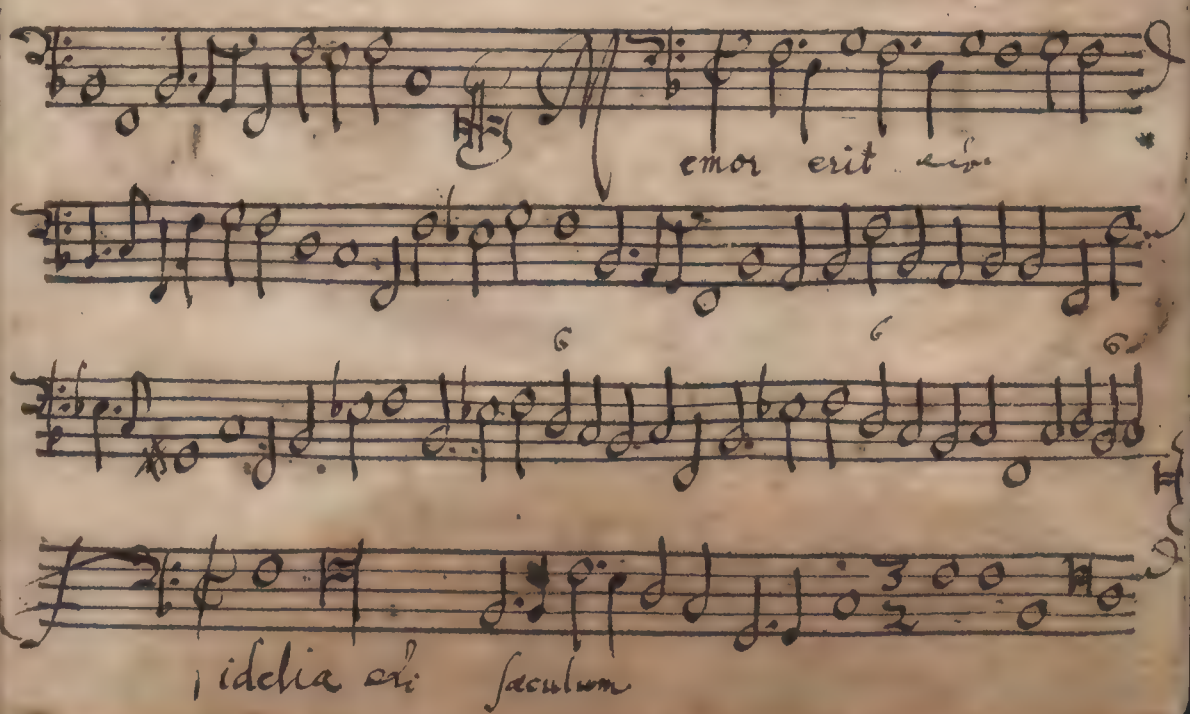 Memor erit &c.
6 6 6
Fidelia &c. sæculum